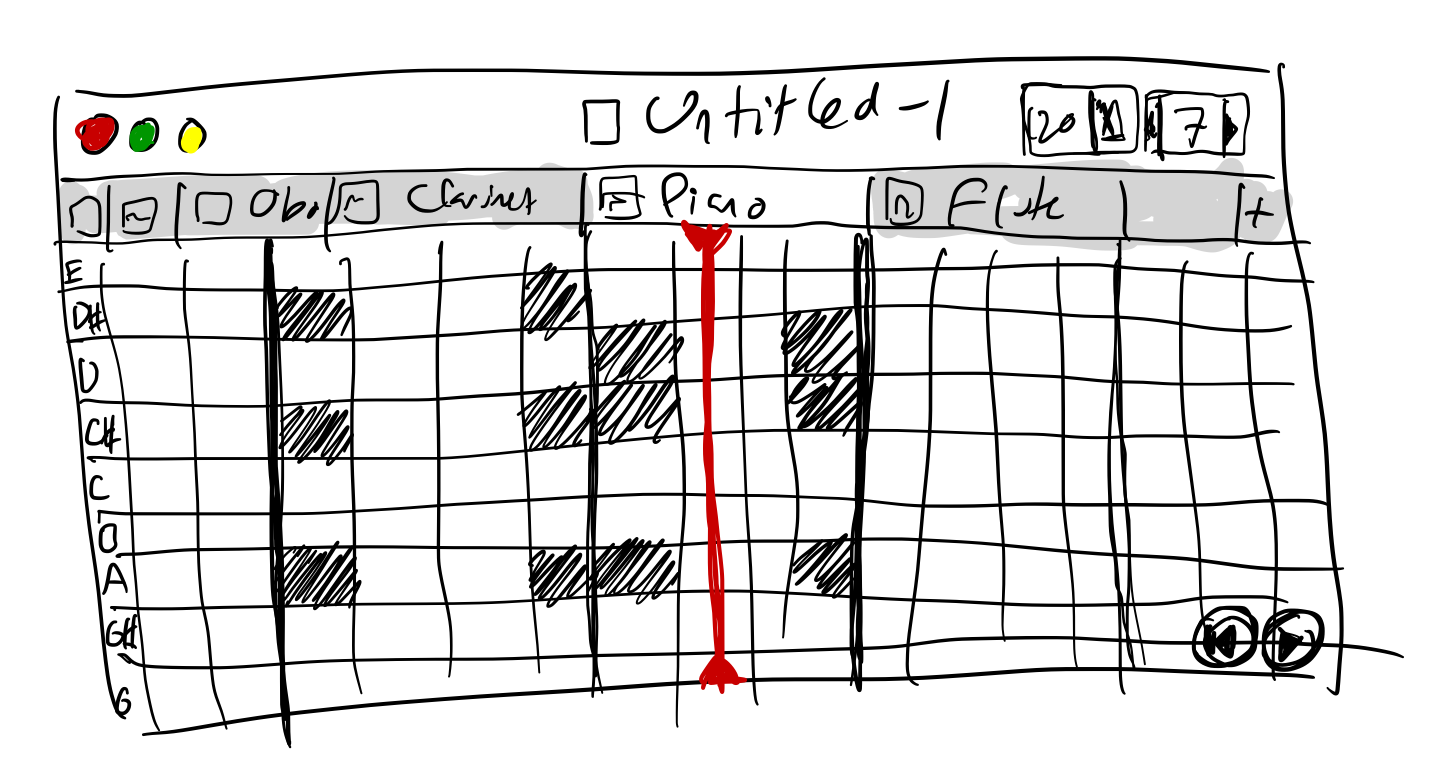 Untitled-1 120 7
Obo Clarinet Piano Flute +
E
D#
D
C#
C
B
A
G#
G